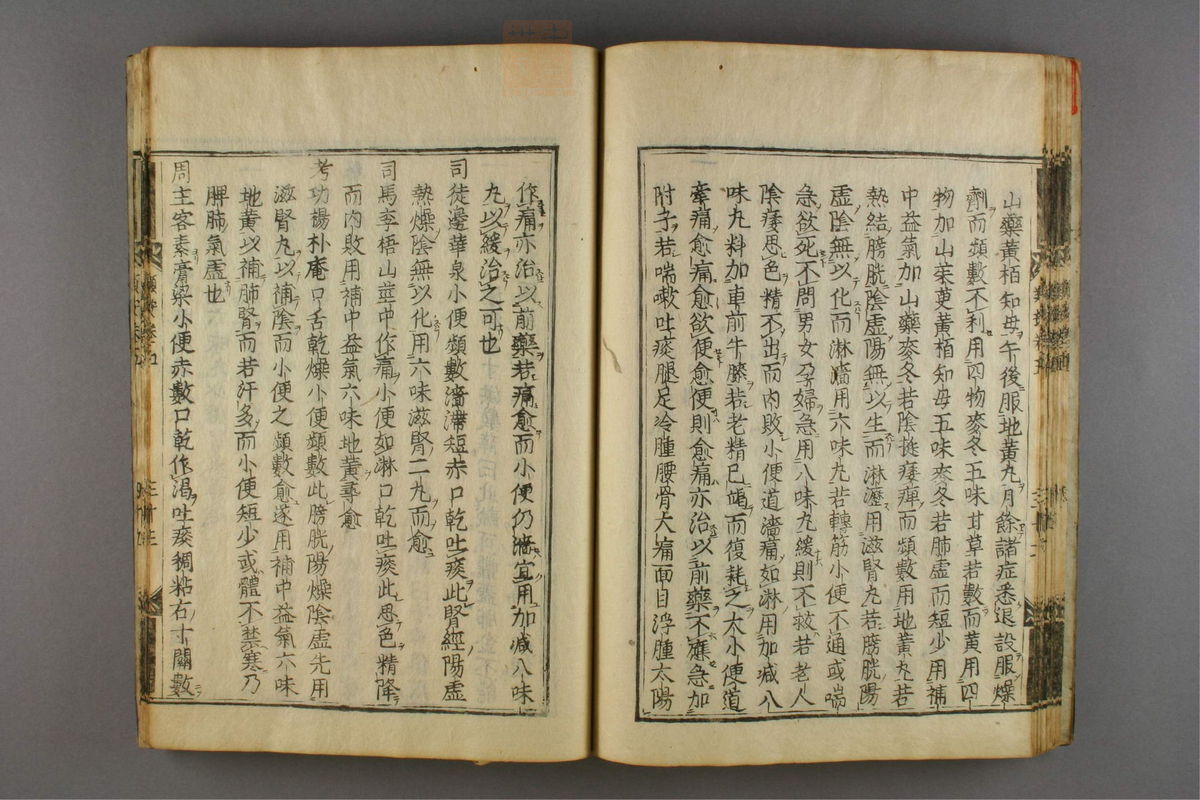 山藥黃栢知母午後服地黃丸月餘諸症悉退設服燥
劑而頻數不利用四物麥冬五味甘草若數而黃用四
物加山茱萸黃栢知母五味麥冬若肺虛而短少用補
中益氣加山藥麥冬若陰挺痿痺而頻數用地黃丸若
熱結膀胱陰虛陽無以生而淋瀝用滋腎丸若膀胱陽
虛陰無以化而淋濇用六味丸若轉筋小便不通或喘
急欲死不問男女孕婦急用八味丸緩則不救若老人
陰痿思色精不出而內敗小便道濇痛如淋用加减八
味丸料加車前牛膝若老精已竭而復耗之大小便道
牽痛愈痛愈欲便愈便則愈痛亦治以前藥不應急加
附子若喘嗽吐痰腿足冷腫腰骨大痛面目浮腫太陽
作痛亦治以前藥若痛愈而小便仍濇宜用加减八味
丸以緩治之可也
司徒邊華泉小便頻數濇滯短赤口乾吐痰此腎經陽虛
熱燥陰無以化用六味滋腎二丸而愈
司馬李梧山莖中作痛小便如淋口乾吐痰此思色精降
而內敗用補中益氣六味地黃藥愈
考功楊朴庵口舌乾燥小便頻數此膀胱陽燥陰虛先用
滋腎丸以補陰而小便之頻數愈遂用補中益氣六味
地黃以補肺腎而若汗多而小便短少或體不禁寒乃
脾肺氣虛也
周主客素膏粱小便赤數口乾作渴吐痰稠粘右寸關數